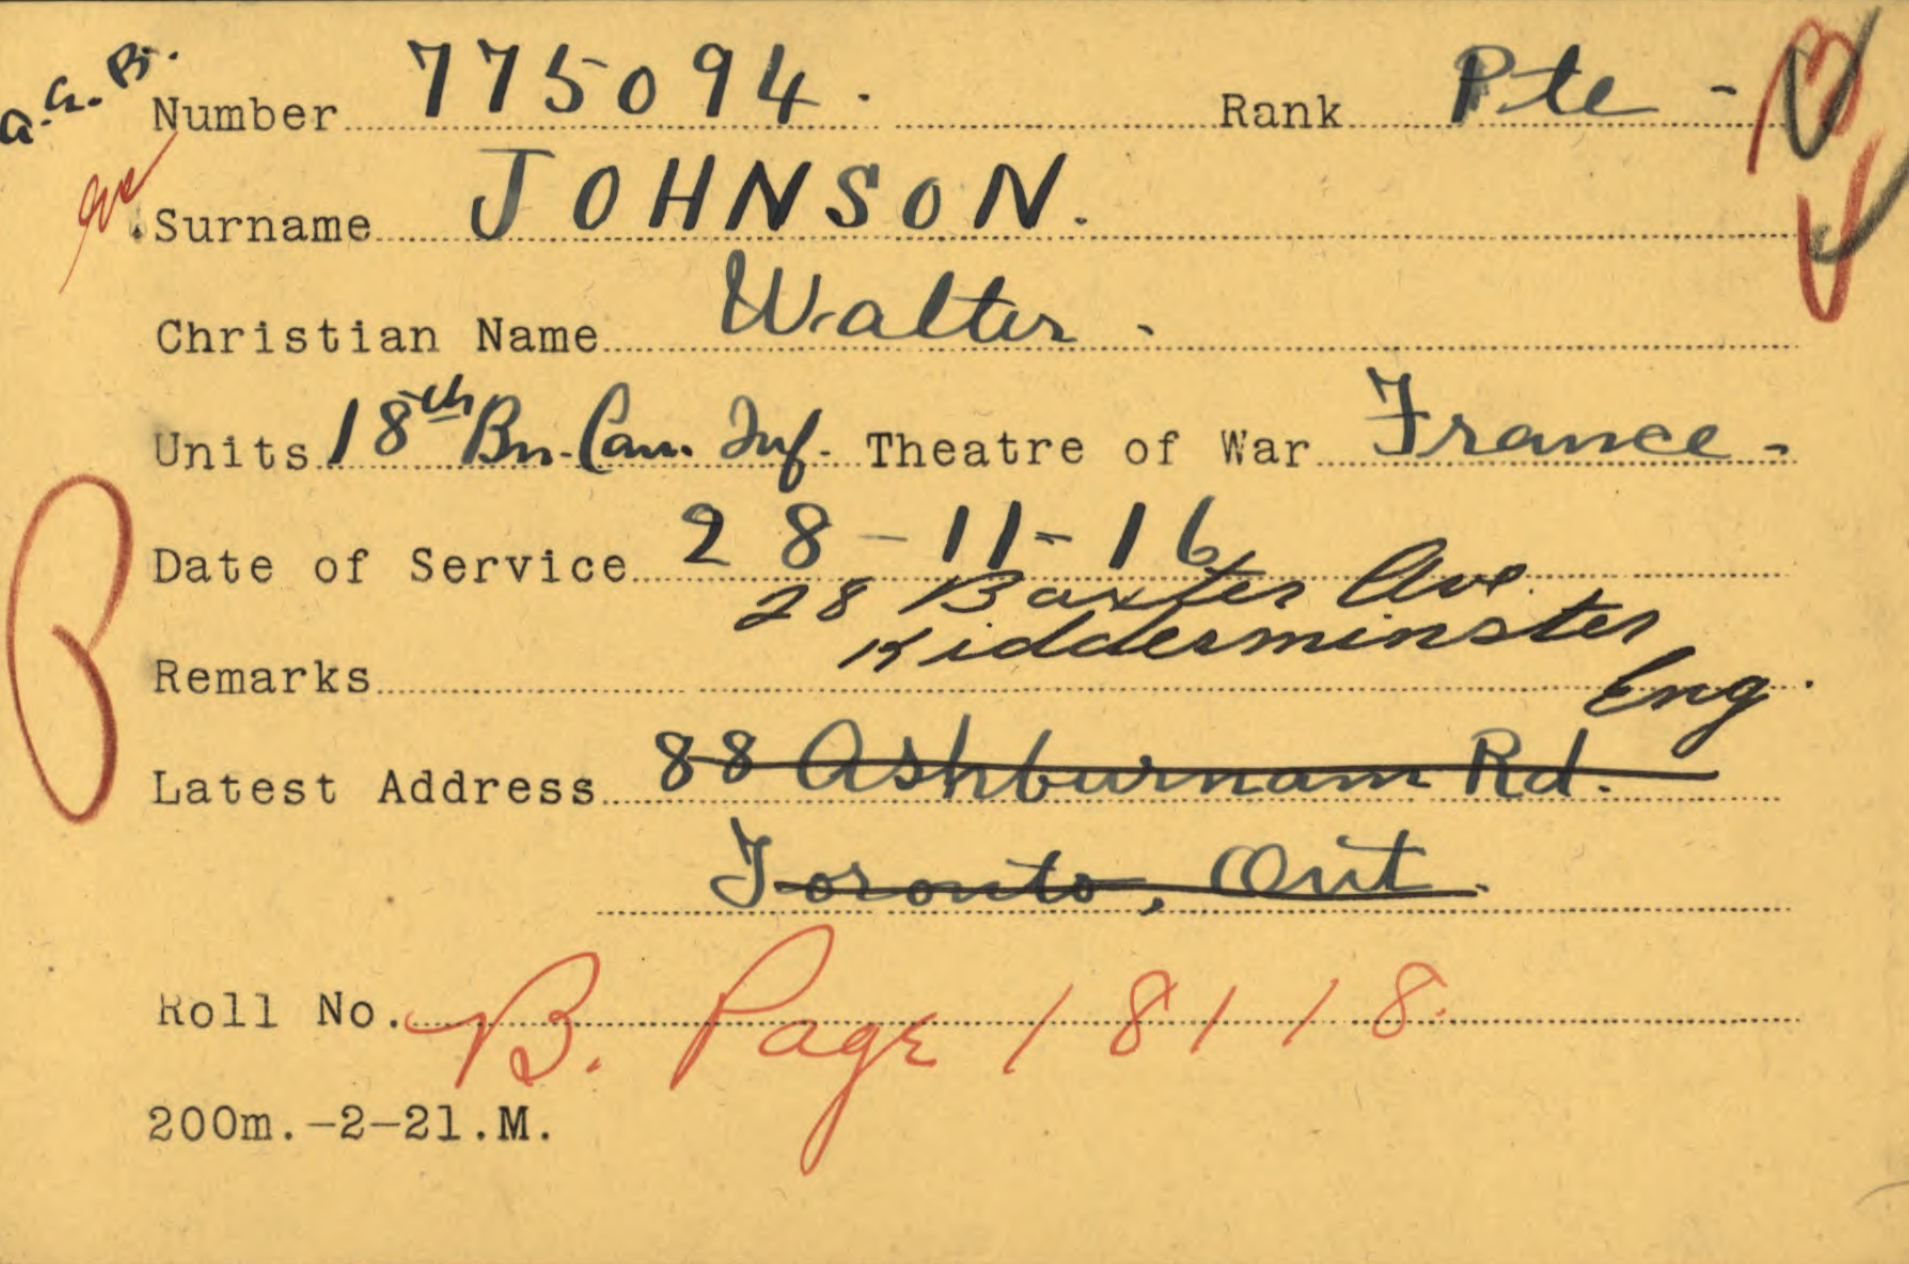 a.G.B.
Number 775094. Rank Pte -
Surname JOHNSON.
Christian Name Walter -
Units 18th Bn. Can. Inf. Theatre of War France -
Date of Service 28-11-16
28 Baxter Ave.
Kidderminster
Remarks Eng.
Latest Address 88 Ashburnam Rd.
Toronto, Ont.
Roll No. B. Page 18118.
200m.-2-21.M.
B